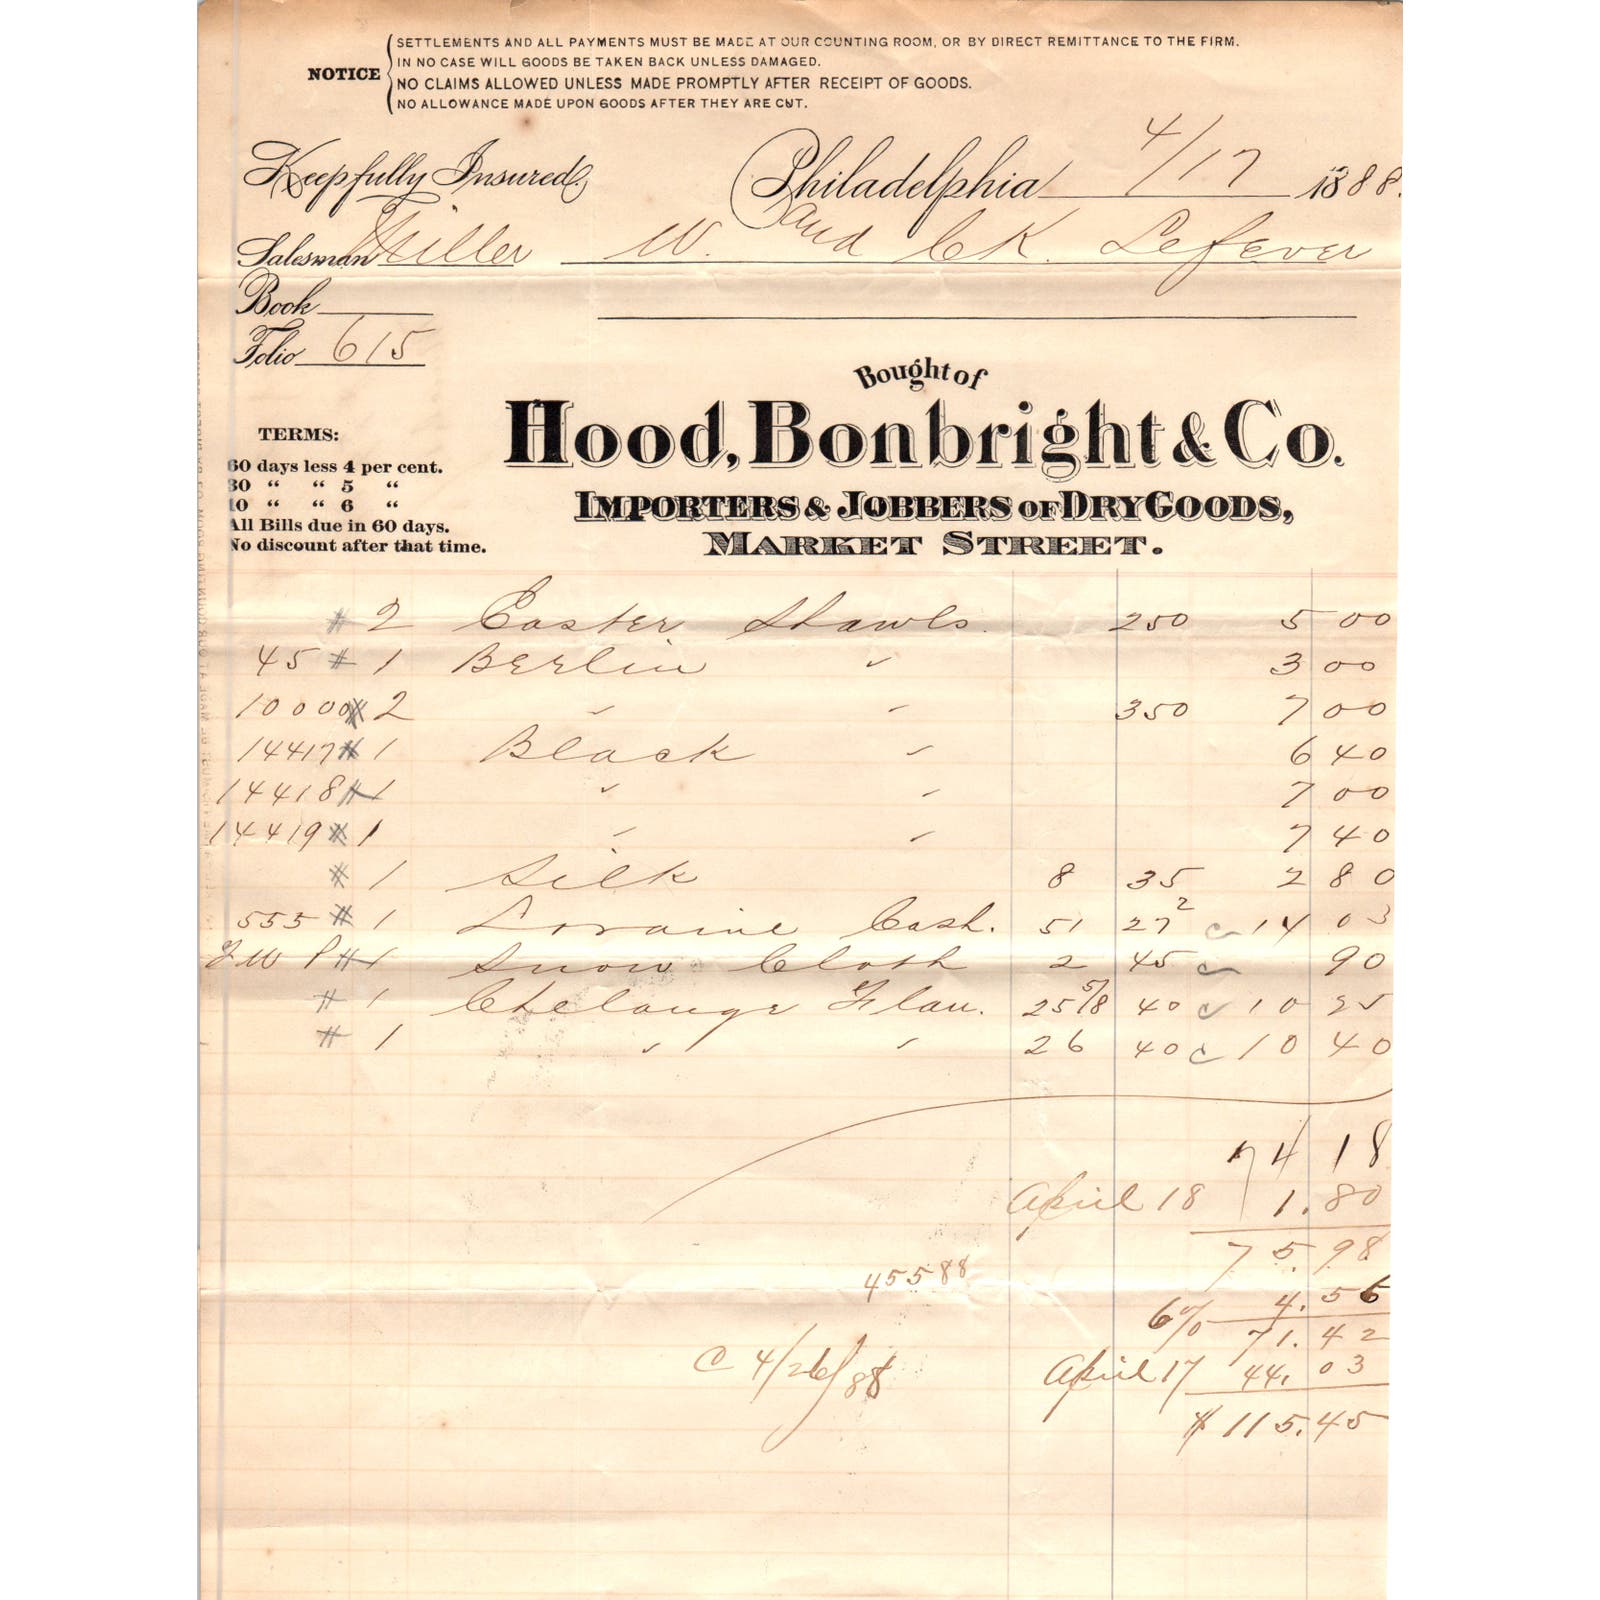 NOTICE
SETTLEMENTS AND ALL PAYMENTS MUST BE MADE AT OUR COUNTING ROOM, OR BY DIRECT REMITTANCE TO THE FIRM.
IN NO CASE WILL GOODS BE TAKEN BACK UNLESS DAMAGED.
NO CLAIMS ALLOWED UNLESS MADE PROMPTLY AFTER RECEIPT OF GOODS.
NO ALLOWANCE MADE UPON GOODS AFTER THEY ARE CUT.
Keep fully Insured. Philadelphia 4/17 1888.
Salesman Miller W. and CK. Lefever
Book
Folio 615
Bought of
Hood, Bonbright & Co.
IMPORTERS & JOBBERS OF DRY GOODS,
MARKET STREET.
TERMS:
60 days less 4 per cent.
30 " " 5 "
10 " " 6 "
All Bills due in 60 days.
No discount after that time.
# 2 Easter Shawls. 250 5 00
45 # 1 Berlin " 3 00
10000 # 2 " " 350 7 00
14417 # 1 Black " 6 40
14418 # 1 " " 7 00
14419 # 1 " " 7 40
# 1 Silk 8 35 2 80
555 # 1 Lorraine Cash. 51 27² c 14 03
# 1 Snow Cloth 2 45 c 90
# 1 Flan. 25 5/8 40 c 10 25
# 1 " " 26 40 c 10 40
74 18
April 18 1.80
75.98
45588
6% 4.56
71.42
C 4/26/88 April 17 44.03
$ 115.45